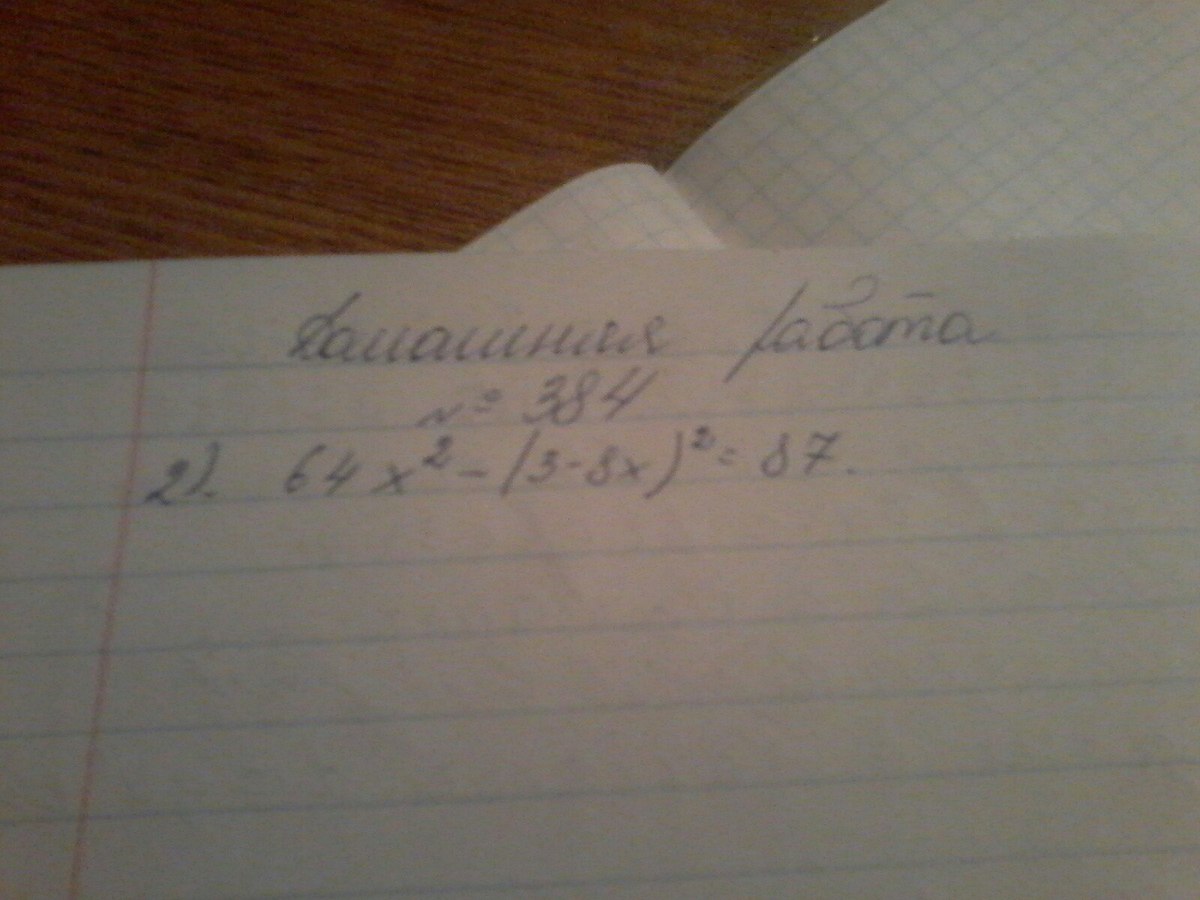 Домашняя работа
№ 384
2). 64x² - (3-8x)² = 87.